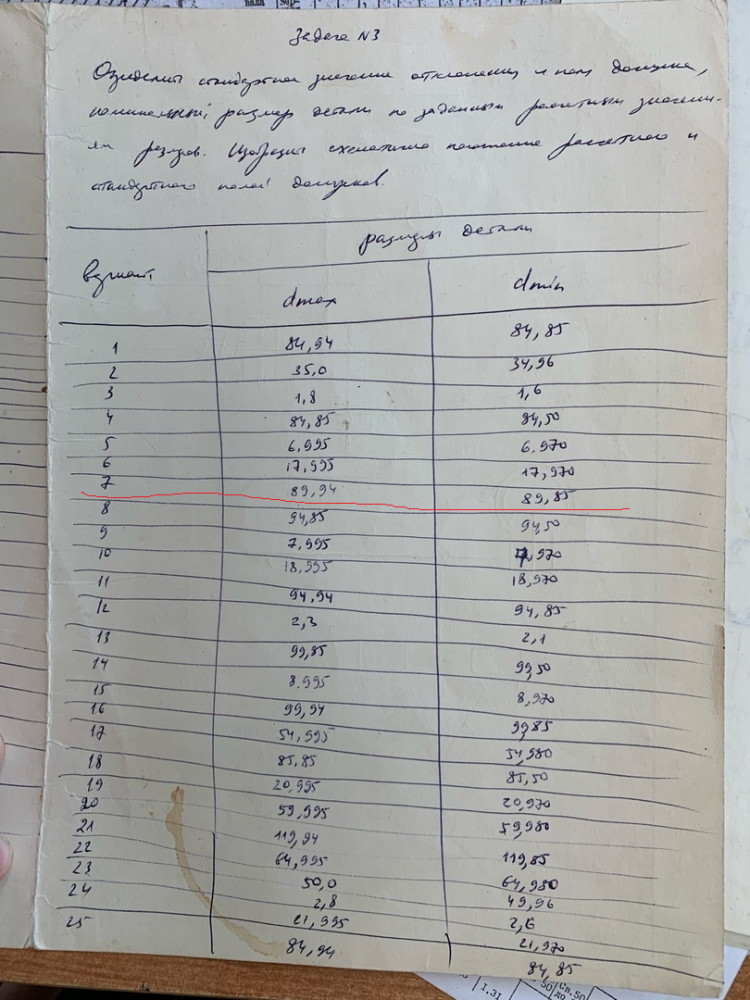 Задача N3
Определить стандартное значение отклонения и поля допуска,
номинальный размер детали по заданным расчетным значени-
ям размеров. Изобразить схематично положение расчетного и
стандартного полей допусков.
вариант размеры детали
dmax dmin
1 84,94 84,85
2 35,0 34,96
3 1,8 1,6
4 84,85 84,50
5 6,995 6,970
6 17,995 17,970
7 89,94 89,85
8 94,85 94,50
9 7,995 7,970
10 18,995 18,970
11 94,94 94,85
12 2,3 2,1
13 99,85 99,50
14 8,995 8,970
15 99,94 99,85
16 54,995 54,980
17 85,85 85,50
18 20,995 20,970
19 59,995 59,980
20 119,94 119,85
21 64,995 64,980
22 50,0 49,96
23 2,8 2,6
24 21,995 21,970
25 84,94 84,85